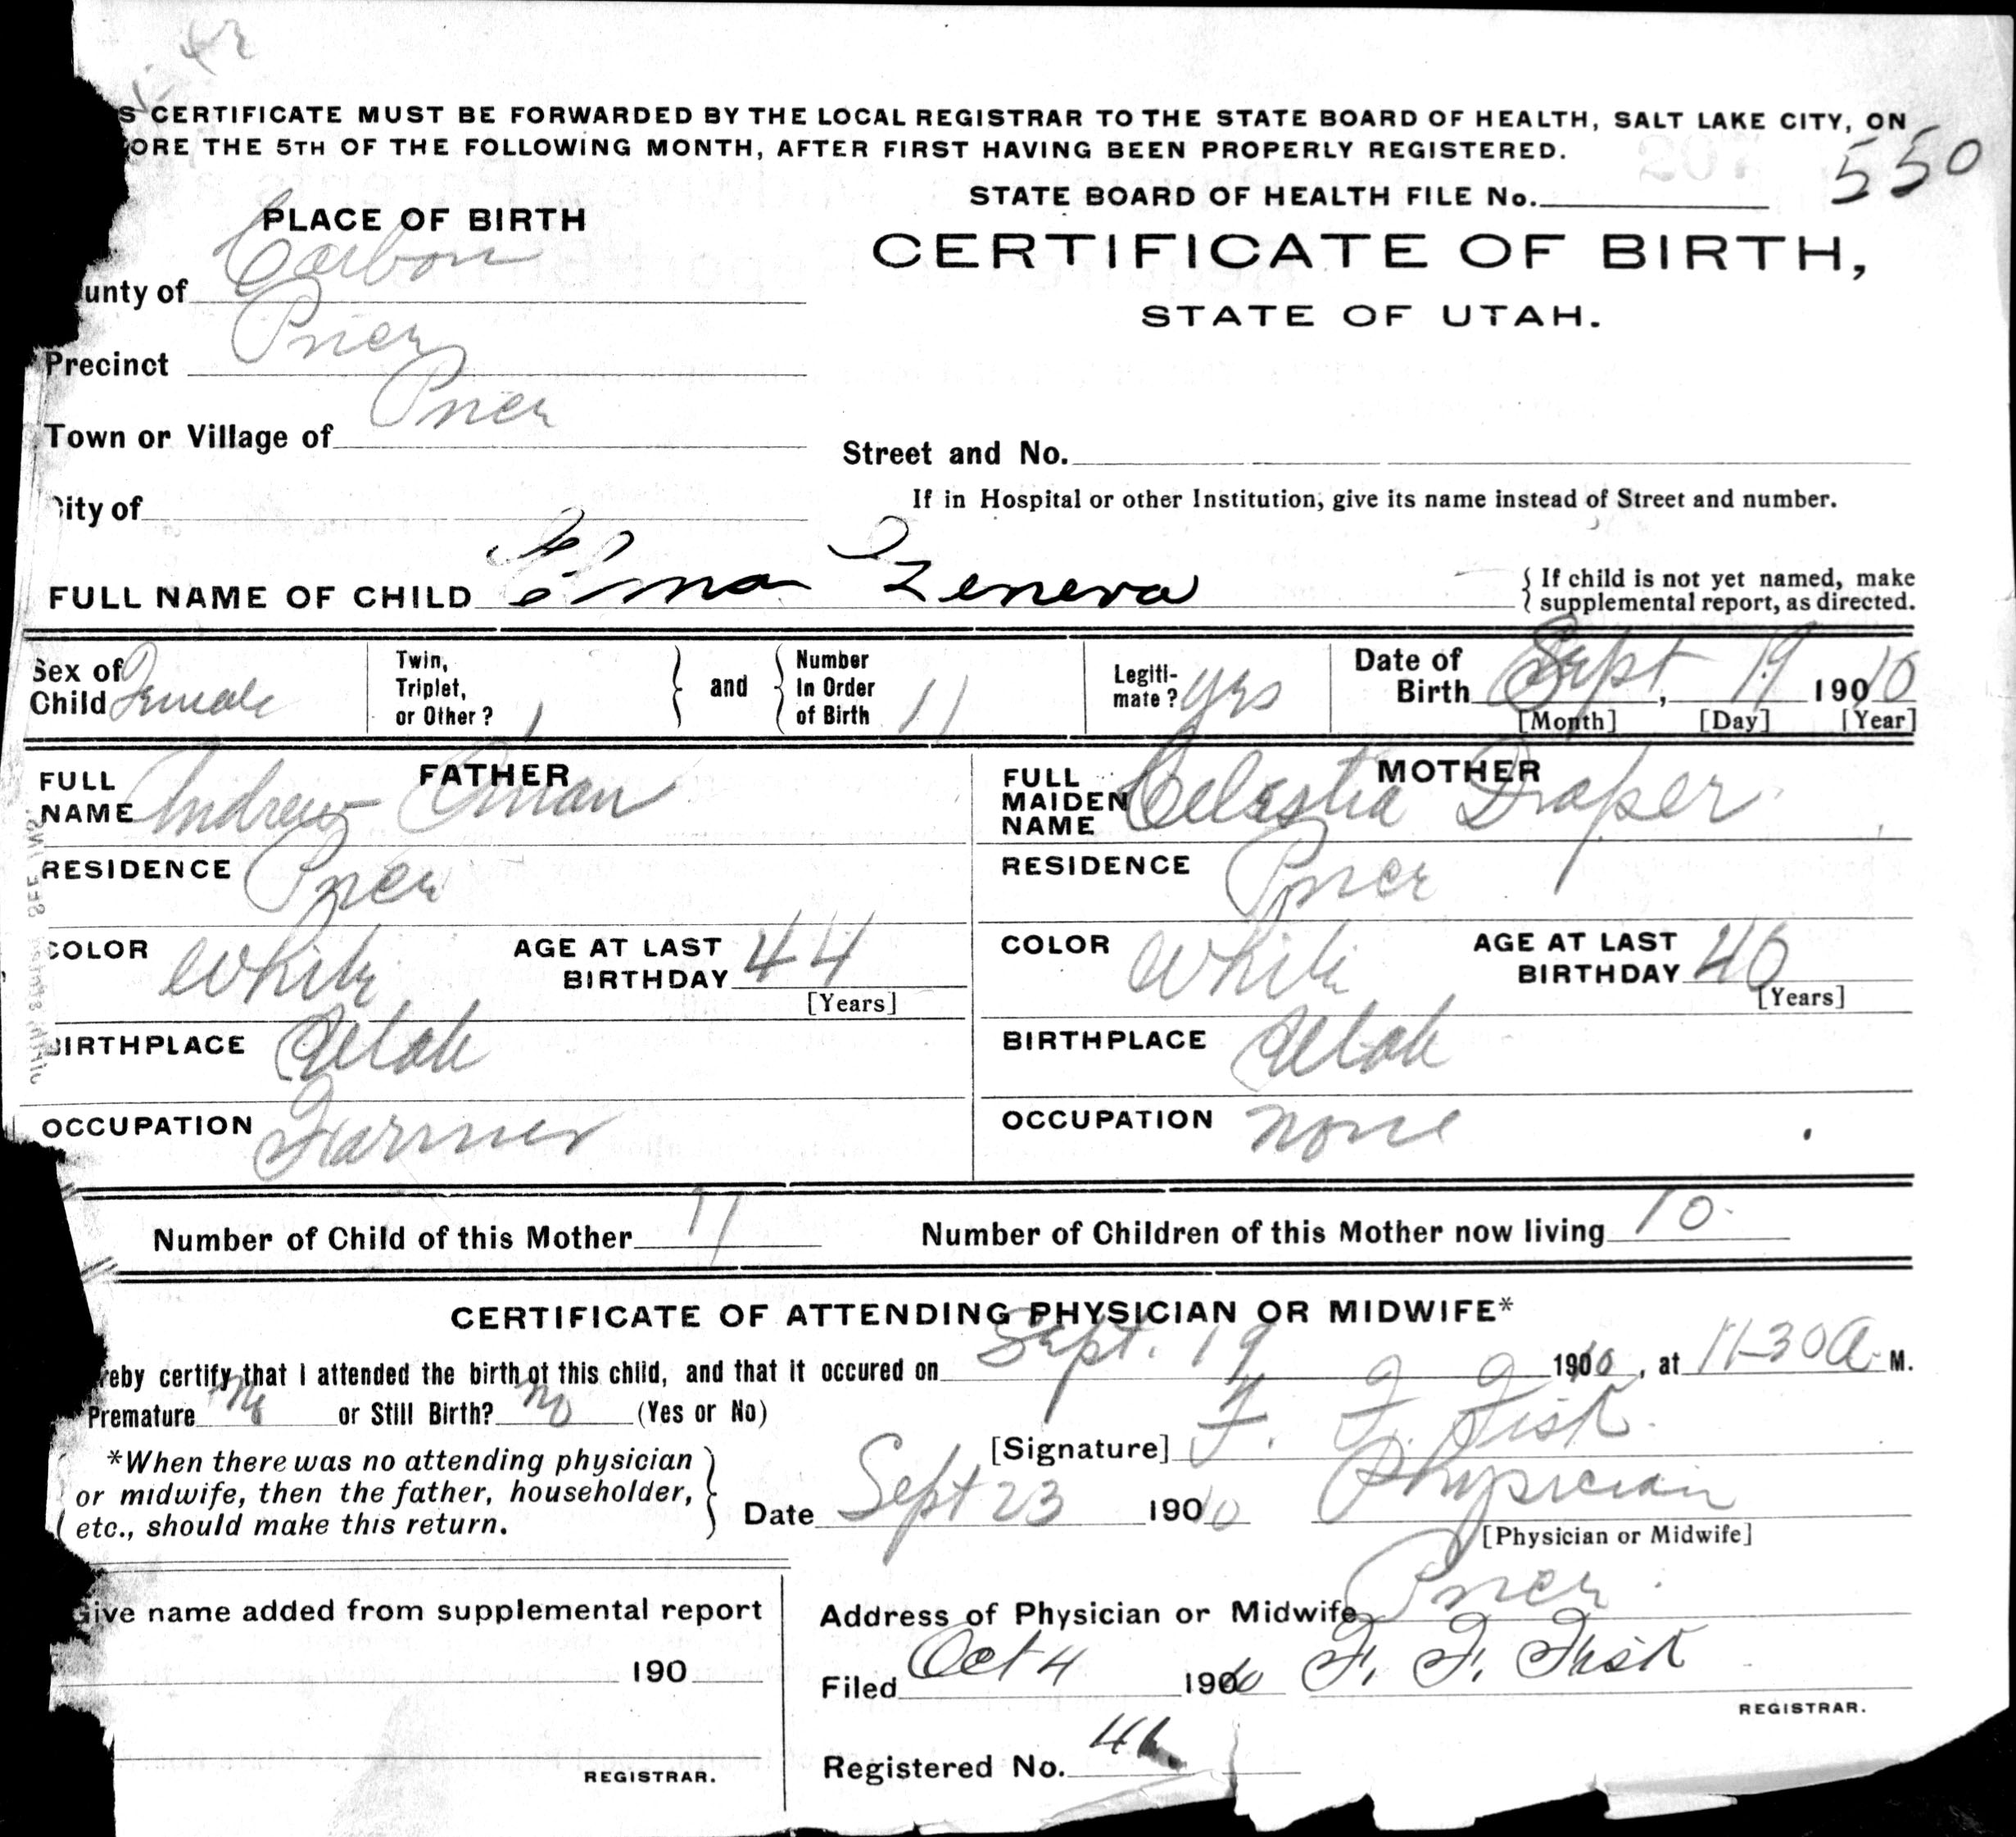 S CERTIFICATE MUST BE FORWARDED BY THE LOCAL REGISTRAR TO THE STATE BOARD OF HEALTH, SALT LAKE CITY, ON
ORE THE 5TH OF THE FOLLOWING MONTH, AFTER FIRST HAVING BEEN PROPERLY REGISTERED.
550
STATE BOARD OF HEALTH FILE No.
PLACE OF BIRTH
CERTIFICATE OF BIRTH,
STATE OF UTAH.
unty of Carbon
Precinct Price
Town or Village of Price
Street and No.
City of
If in Hospital or other Institution, give its name instead of Street and number.
FULL NAME OF CHILD Geneva
{ If child is not yet named, make
supplemental report, as directed.
Sex of Child Female
Twin, Triplet, or Other? 1 } and { Number In Order of Birth 11
Legitimate? yes
Date of Birth Sept, 19 190 10
[Month] [Day] [Year]
FATHER
FULL NAME Andrew
RESIDENCE Price
COLOR White AGE AT LAST BIRTHDAY 44
[Years]
BIRTHPLACE Utah
OCCUPATION Farmer
MOTHER
FULL MAIDEN NAME Celestia Draper
RESIDENCE Price
COLOR White AGE AT LAST BIRTHDAY 40
[Years]
BIRTHPLACE Utah
OCCUPATION none
Number of Child of this Mother 11 Number of Children of this Mother now living 10
CERTIFICATE OF ATTENDING PHYSICIAN OR MIDWIFE*
reby certify that I attended the birth of this child, and that it occured on Sept. 19 1910, at 11-30 A. M.
Premature No or Still Birth? No (Yes or No)
[Signature] F. F. Fisk
*When there was no attending physician
or midwife, then the father, householder,
etc., should make this return.
Date Sept 23 190 10 Physician
[Physician or Midwife]
Give name added from supplemental report
190
REGISTRAR.
Address of Physician or Midwife Price
Filed Oct 4 1910 F. F. Fisk
REGISTRAR.
Registered No.